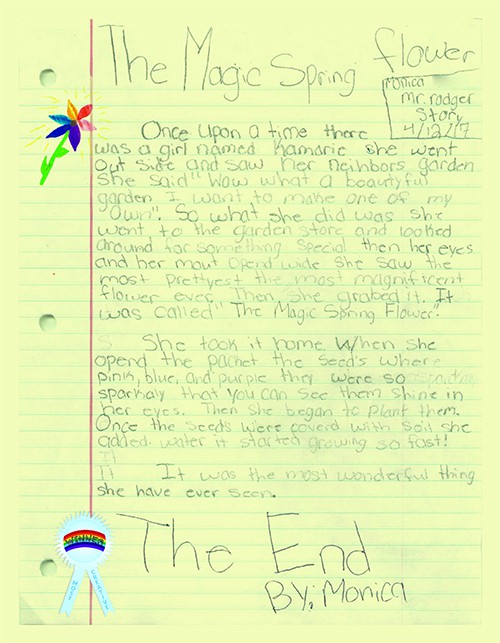 The Magic Spring flower
monica
mr. rodger
Story
4/12/17
Once upon a time there
was a girl named Kamarie she went
out side and saw her neinbors garden
She said "Wow what a beautyful
garden I want to make one of my
own". So what she did was she
went to the garden store and looked
around for something special then her eyes
and her mout opend wide she saw the
most prettyest the most magnificent
flower ever. Then, she grabed it. It
was called "The Magic Spring Flower".
She took it home. When she
opend the packet the seed's where
pink, blue, and purple they were so
sparkaly that you can see them shine in
her eyes. Then she began to plant them.
Once the seeds were coverd with soil she
added water it started growing so fast!
It was the most wonderful thing
she have ever seen.
The End
By: Monica
WINNER